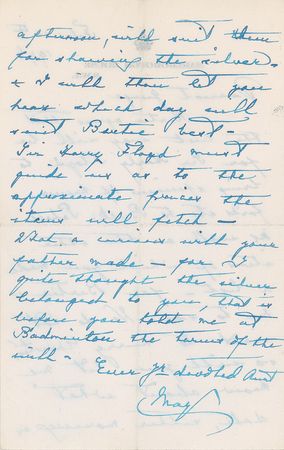 afternoon, will suit them
for showing the silver -
& I will then let you
hear which day will
suit Bertie best -
Sir Harry Floyd must
guide us as to the
approximate prices the
items will fetch -
What a curious will your
father made - for I
quite thought the silver
belonged to you, that is
before you told me at
Badminton the terms of the
will -
Ever yr. devoted Aunt
May